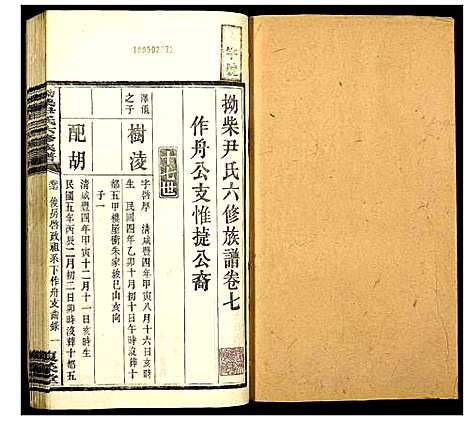 拗柴尹氏六修族譜卷七
作舟公支惟捷公裔
澤儀
之子
樹淩
字啓厚 清咸豐四年甲寅八月十六日亥時
生 民國四年乙卯十月初十日午時沒葬十
都五甲樓屋衝朱家坡巳山亥向
子一
配胡
清咸豐四年甲寅十二月十一日亥時生
民國五年丙辰二月初二日卯時沒葬十都五
卷七 俊房啓政祖系下作舟支齒錄 一